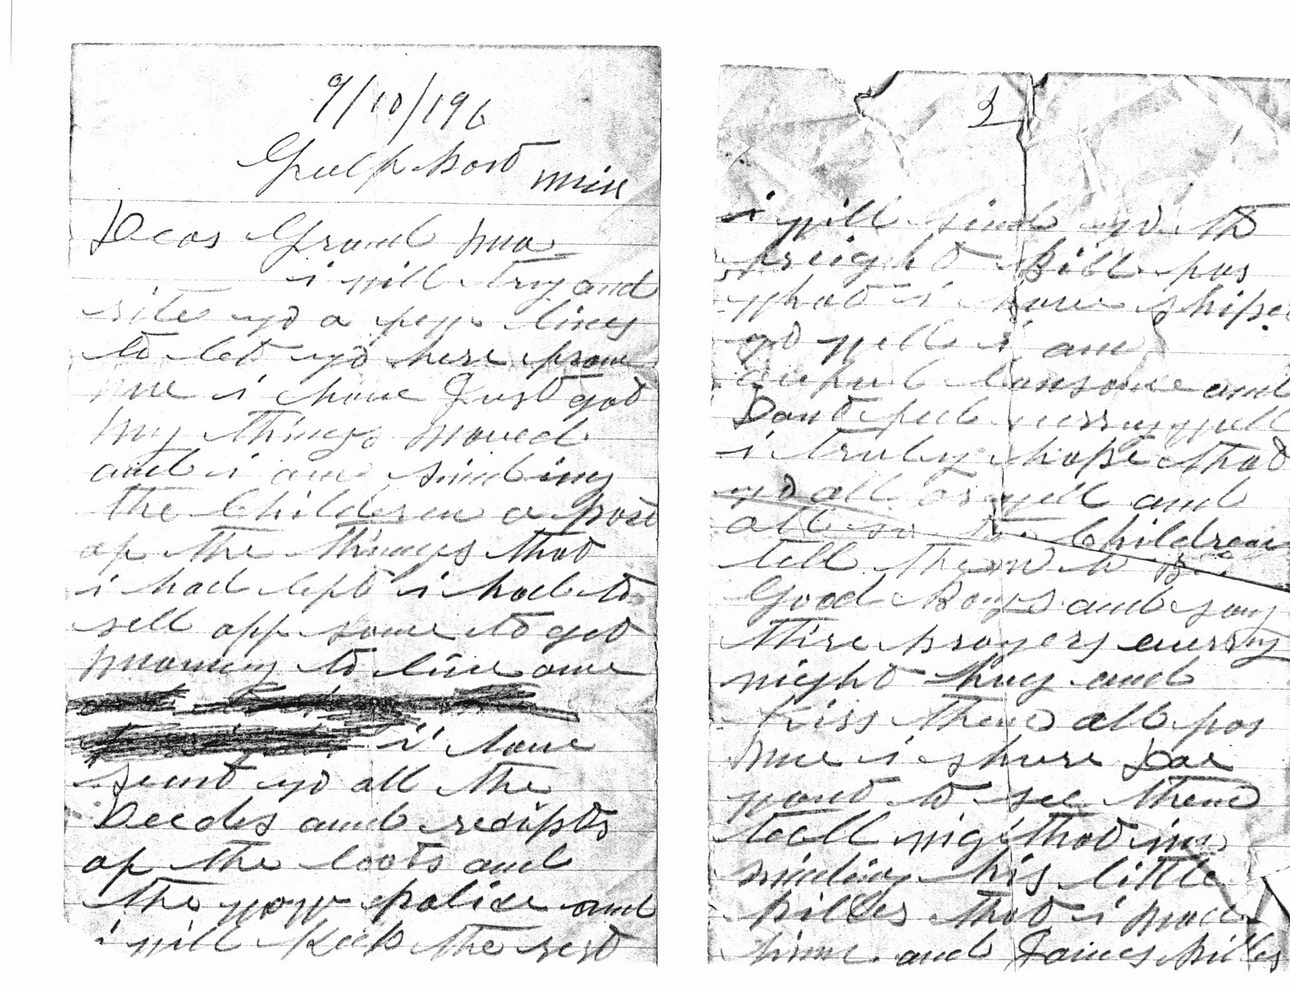 9/10/196
Gulf port miss
Dear Grand ma
i will try and
rite yo a few lines
to let yo here from
me i have Just got
my things moved
and i am sinding
the Children a post
of the things that
i had left i had to
sell off some to get
monney to live one
i have
sent yo all the
Deedes and recipts
of the loots and
the police and
i will keep the rest
2
i will sind yo th
freight Bill for
what i have shiped
yo well i am
auful lonsome and
Dont feel verry well
i truly hope that
yo all ar well and
all so the Children
tell them to Be
Good Boays and say
thire prayers everry
night hug and
kiss them all for
me i shure Doe
want to see them
teall that im
sinding his little
pilles that i mad
him and James pilles